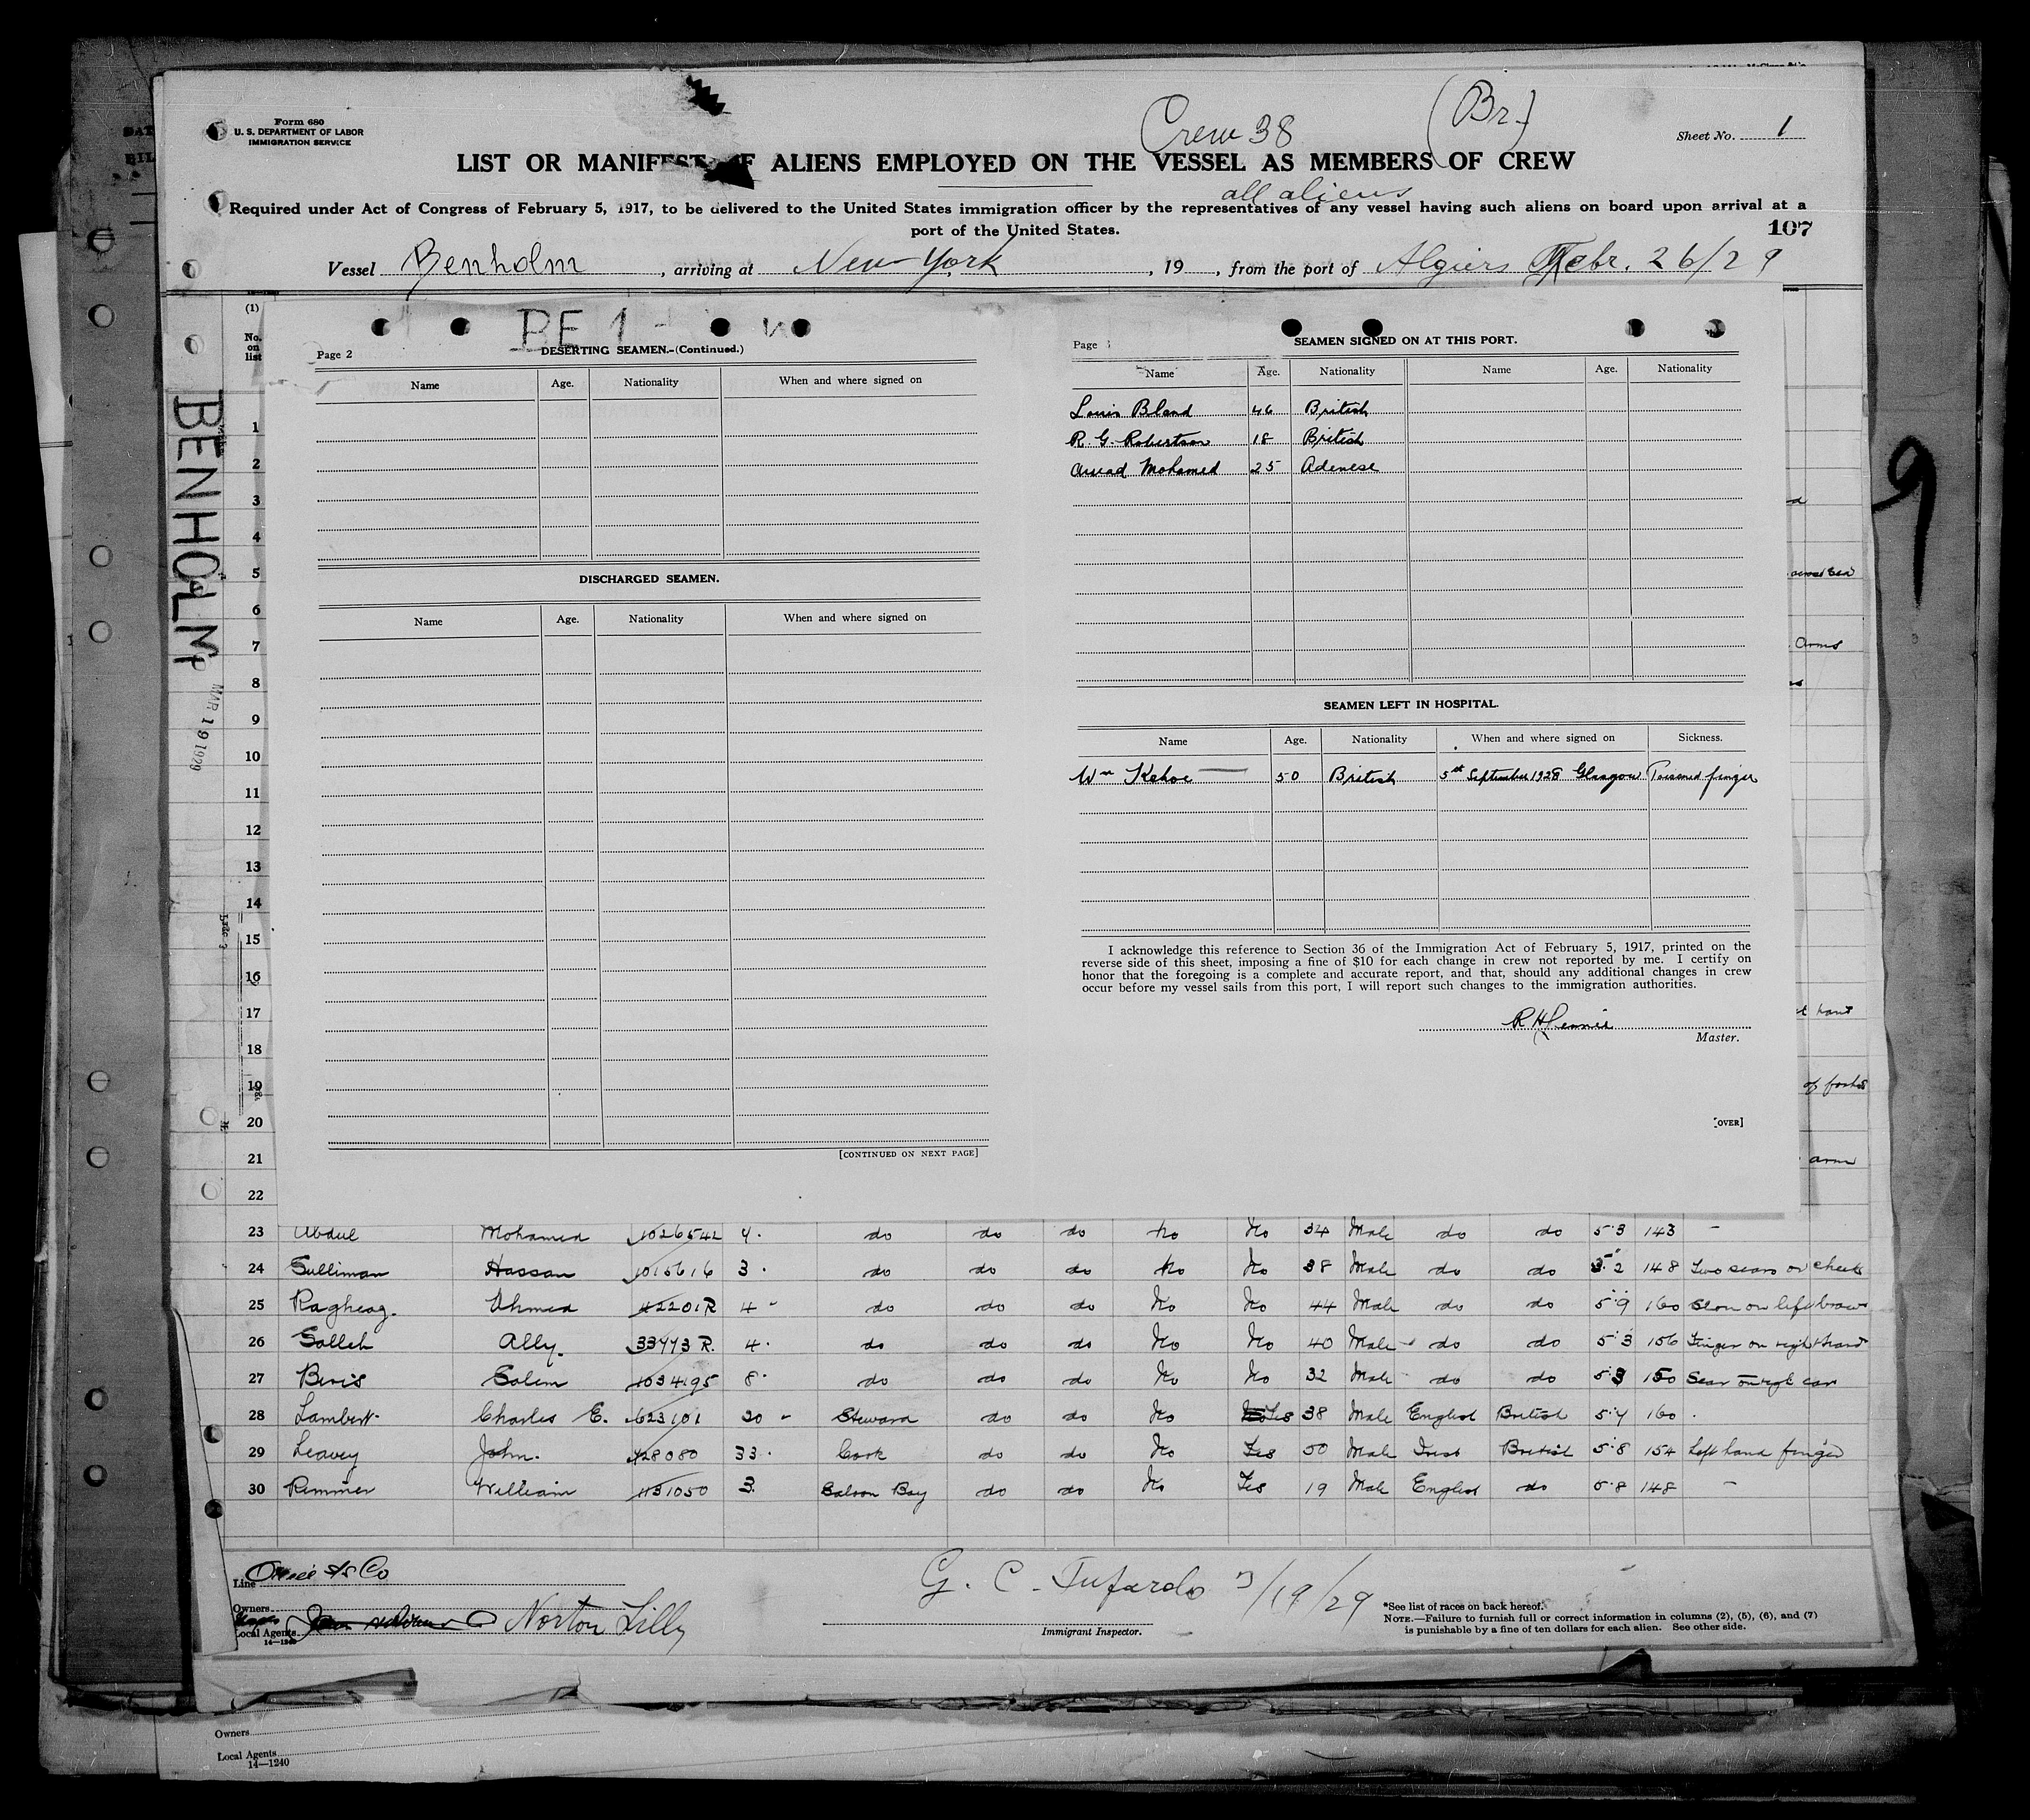 Form 680
U. S. DEPARTMENT OF LABOR
IMMIGRATION SERVICE
Crew 38
(Br.)
Sheet No. 1
LIST OR MANIFEST OF ALIENS EMPLOYED ON THE VESSEL AS MEMBERS OF CREW
all aliens
Required under Act of Congress of February 5, 1917, to be delivered to the United States immigration officer by the representatives of any vessel having such aliens on board upon arrival at a
port of the United States.
107
Vessel Benholm, arriving at New York, 19 , from the port of Algiers Febr. 26/29
(1)
No. on list
BENHOLM
MAR 19 1929
9
Page 2
DESERTING SEAMEN.-(Continued.)
Name Age. Nationality When and where signed on
DISCHARGED SEAMEN.
Name Age. Nationality When and where signed on
[CONTINUED ON NEXT PAGE]
Page
SEAMEN SIGNED ON AT THIS PORT.
Name Age. Nationality Name Age. Nationality
Louis Bland 46 British
R. G. Robertson 18 British
Mohamed 25 Adenese
SEAMEN LEFT IN HOSPITAL.
Name Age. Nationality When and where signed on Sickness.
Wm Kehoe 50 British 5th September 1928 Glasgow Poisoned finger
I acknowledge this reference to Section 36 of the Immigration Act of February 5, 1917, printed on the
reverse side of this sheet, imposing a fine of $10 for each change in crew not reported by me. I certify on
honor that the foregoing is a complete and accurate report, and that, should any additional changes in crew
occur before my vessel sails from this port, I will report such changes to the immigration authorities.
Master.
[OVER]
1
2
3
4
5
6
7
8
9
10
11
12
13
14
15
16
17
18
19
20
21
22
arms
arm
23 Abdul Mohamed 1026542 4. do do do No No 34 Male do do 5.3 143 -
24 Sulliman Hassan 1015616 3. do do do No No 38 Male do do 5.2 148 Two scars on cheek
25 Ahmed 42201R 4 do do do No No 44 Male do do 5.9 160 Scar on left brow
26 Salleh Ally. 33473 R. 4. do do do No No 40 Male do do 5.3 156 Finger on right hand
27 Salem 1034195 8. do do do No No 32 Male do do 5.3 150 Scar
28 Lambert Charles E. 623101 20 Steward do do No Yes 38 Male English British 5.4 160
29 Leavey John. 428080 33. Cook do do No Yes 50 Male Irish British 5.8 154 Left hand finger
30 Rimmer William 1131050 3. Saloon Boy do do No Yes 19 Male English do 5.8 148 -
Line
Owners
Local Agents Norton Lilly
14—1240
G. C. Tufarolo 3/19/29
Immigrant Inspector.
*See list of races on back hereof.
NOTE.—Failure to furnish full or correct information in columns (2), (5), (6), and (7)
is punishable by a fine of ten dollars for each alien. See other side.
Owners
Local Agents
14—1240